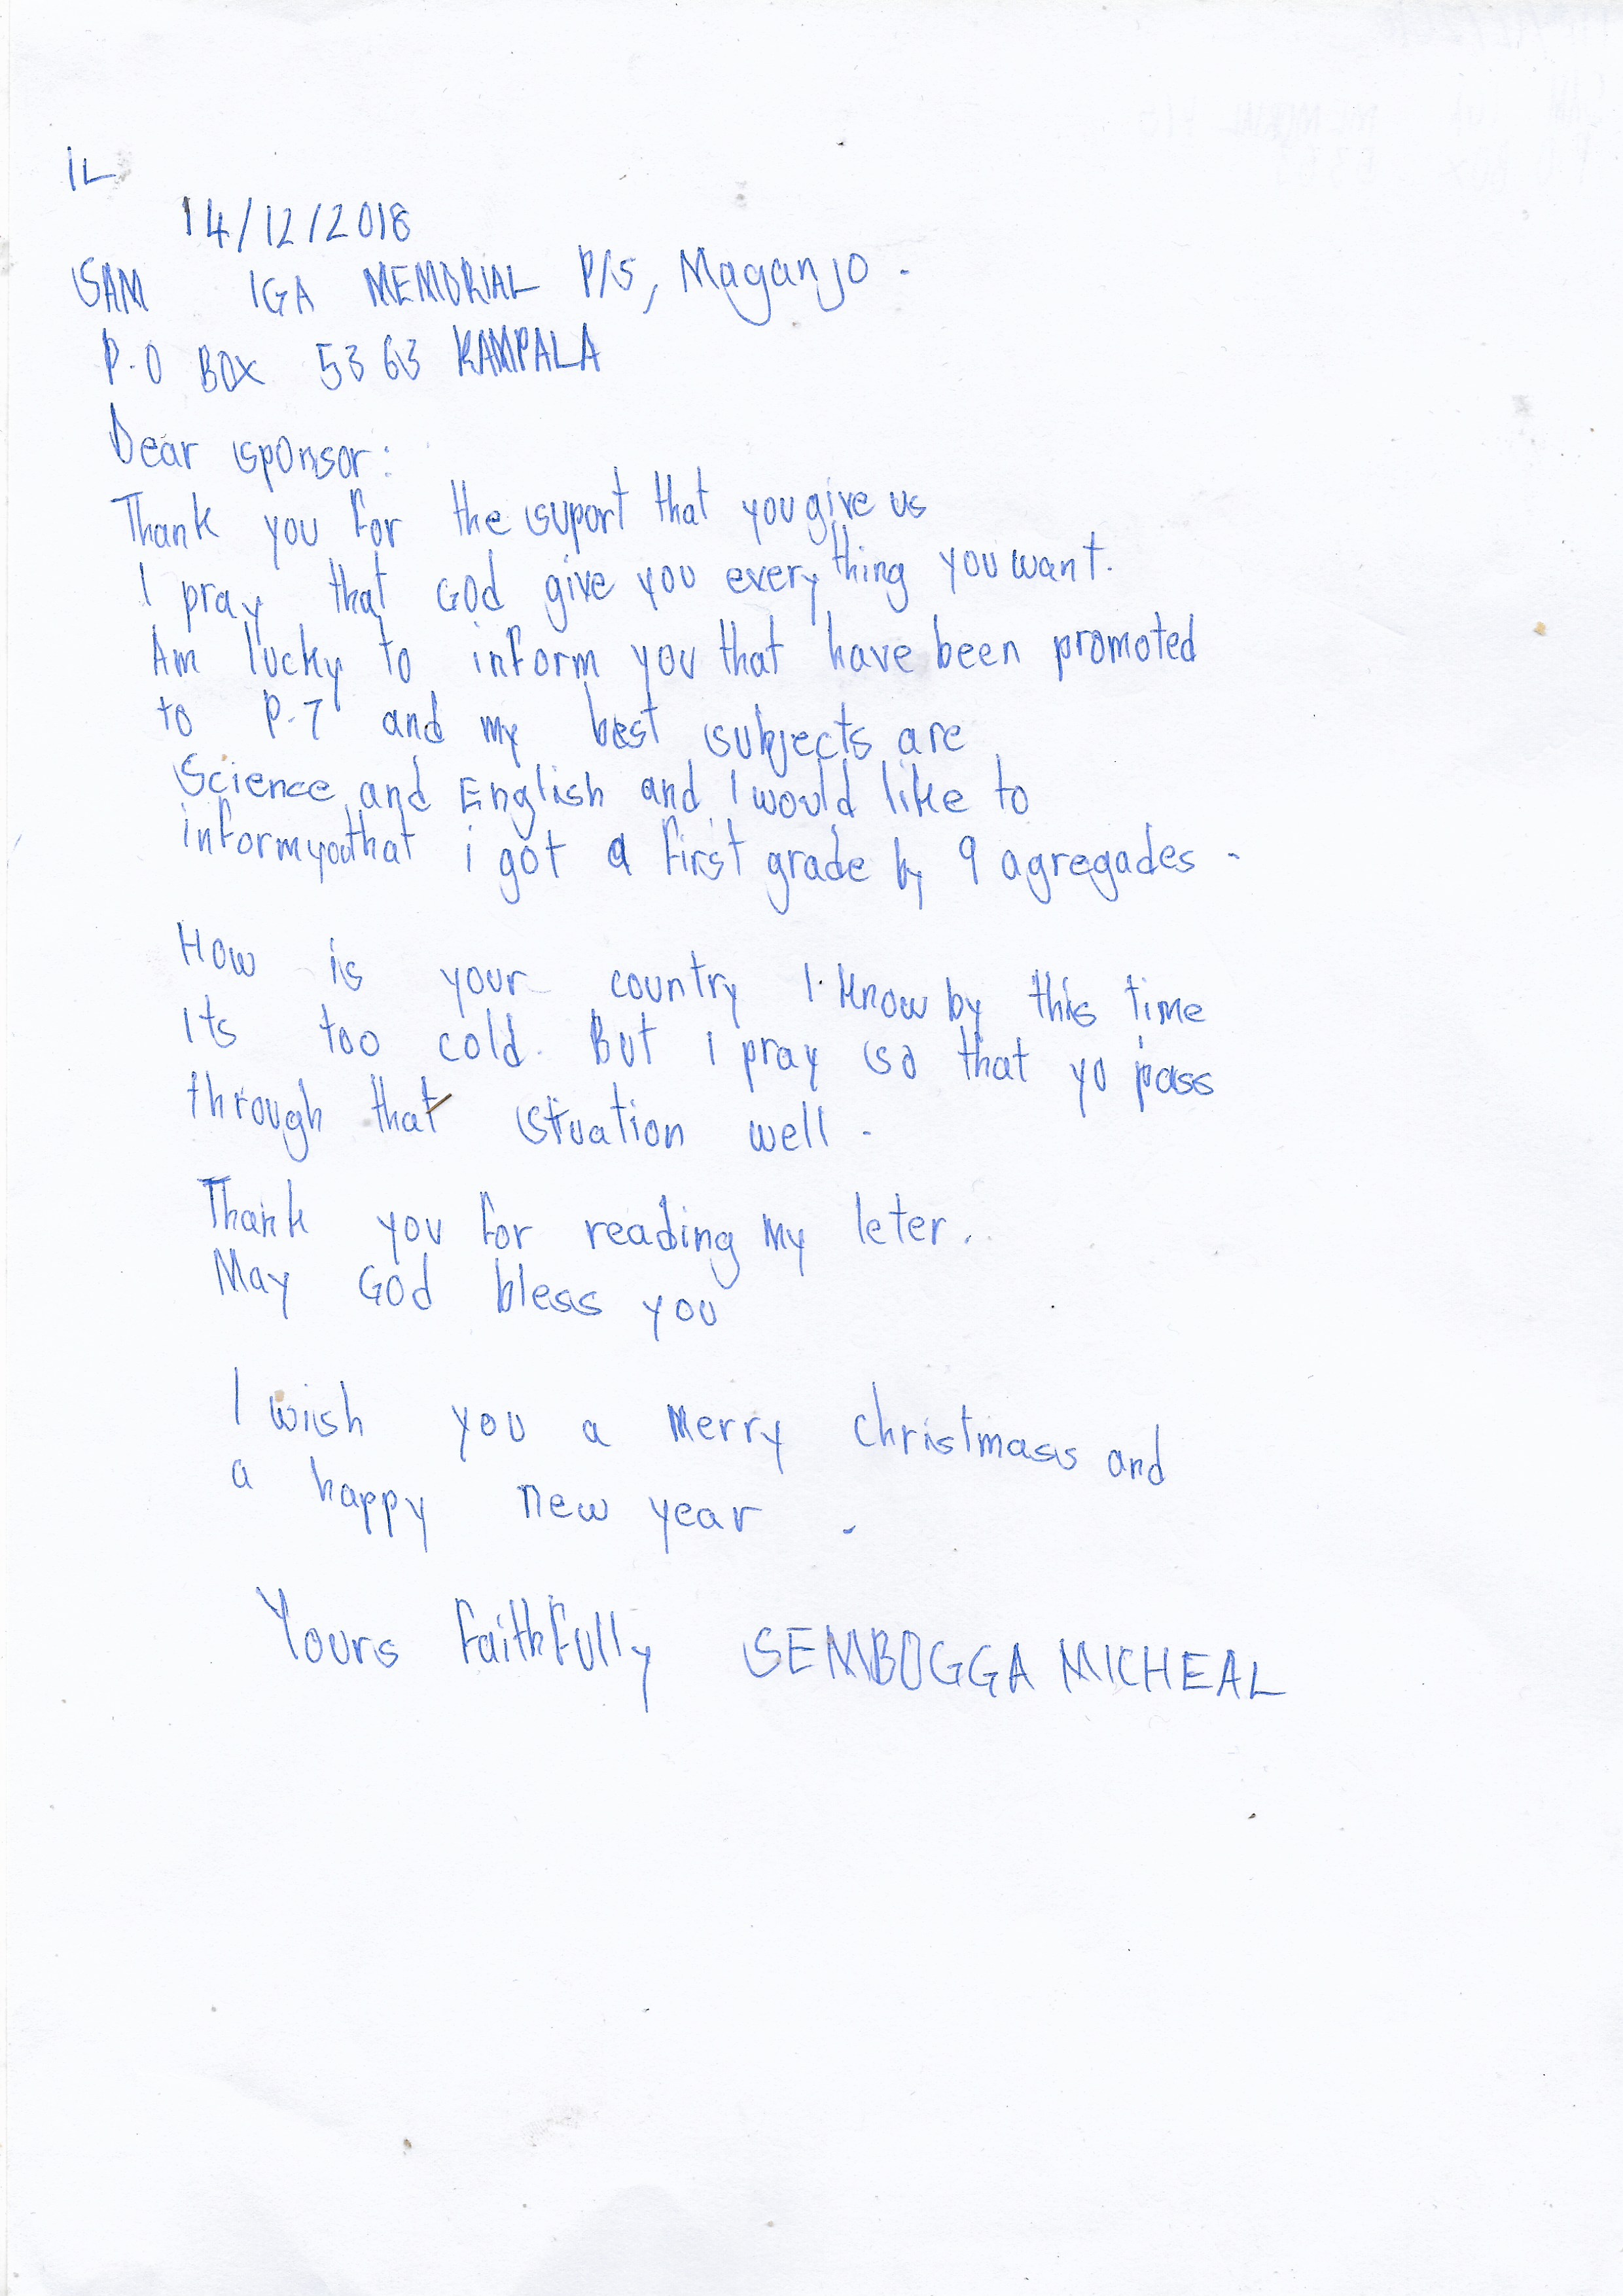 IL
14/12/2018
SAM IGA MEMORIAL P/S, Maganjo.
P.O BOX 5363 KAMPALA
Dear sponsor:
Thank you for the suport that you give us
I pray that God give you every thing you want.
Am lucky to inform you that have been promoted
to P.7 and my best subjects are
Science and English and I would like to
inform you that i got a first grade by 9 agregades.
How is your country I know by this time
Its too cold. But i pray so that yo pass
through that stuation well.
Thank you for reading my leter.
May God bless you
I wish you a merry christmass and
a happy new year.
Yours faithfully SEMBOGGA MICHEAL